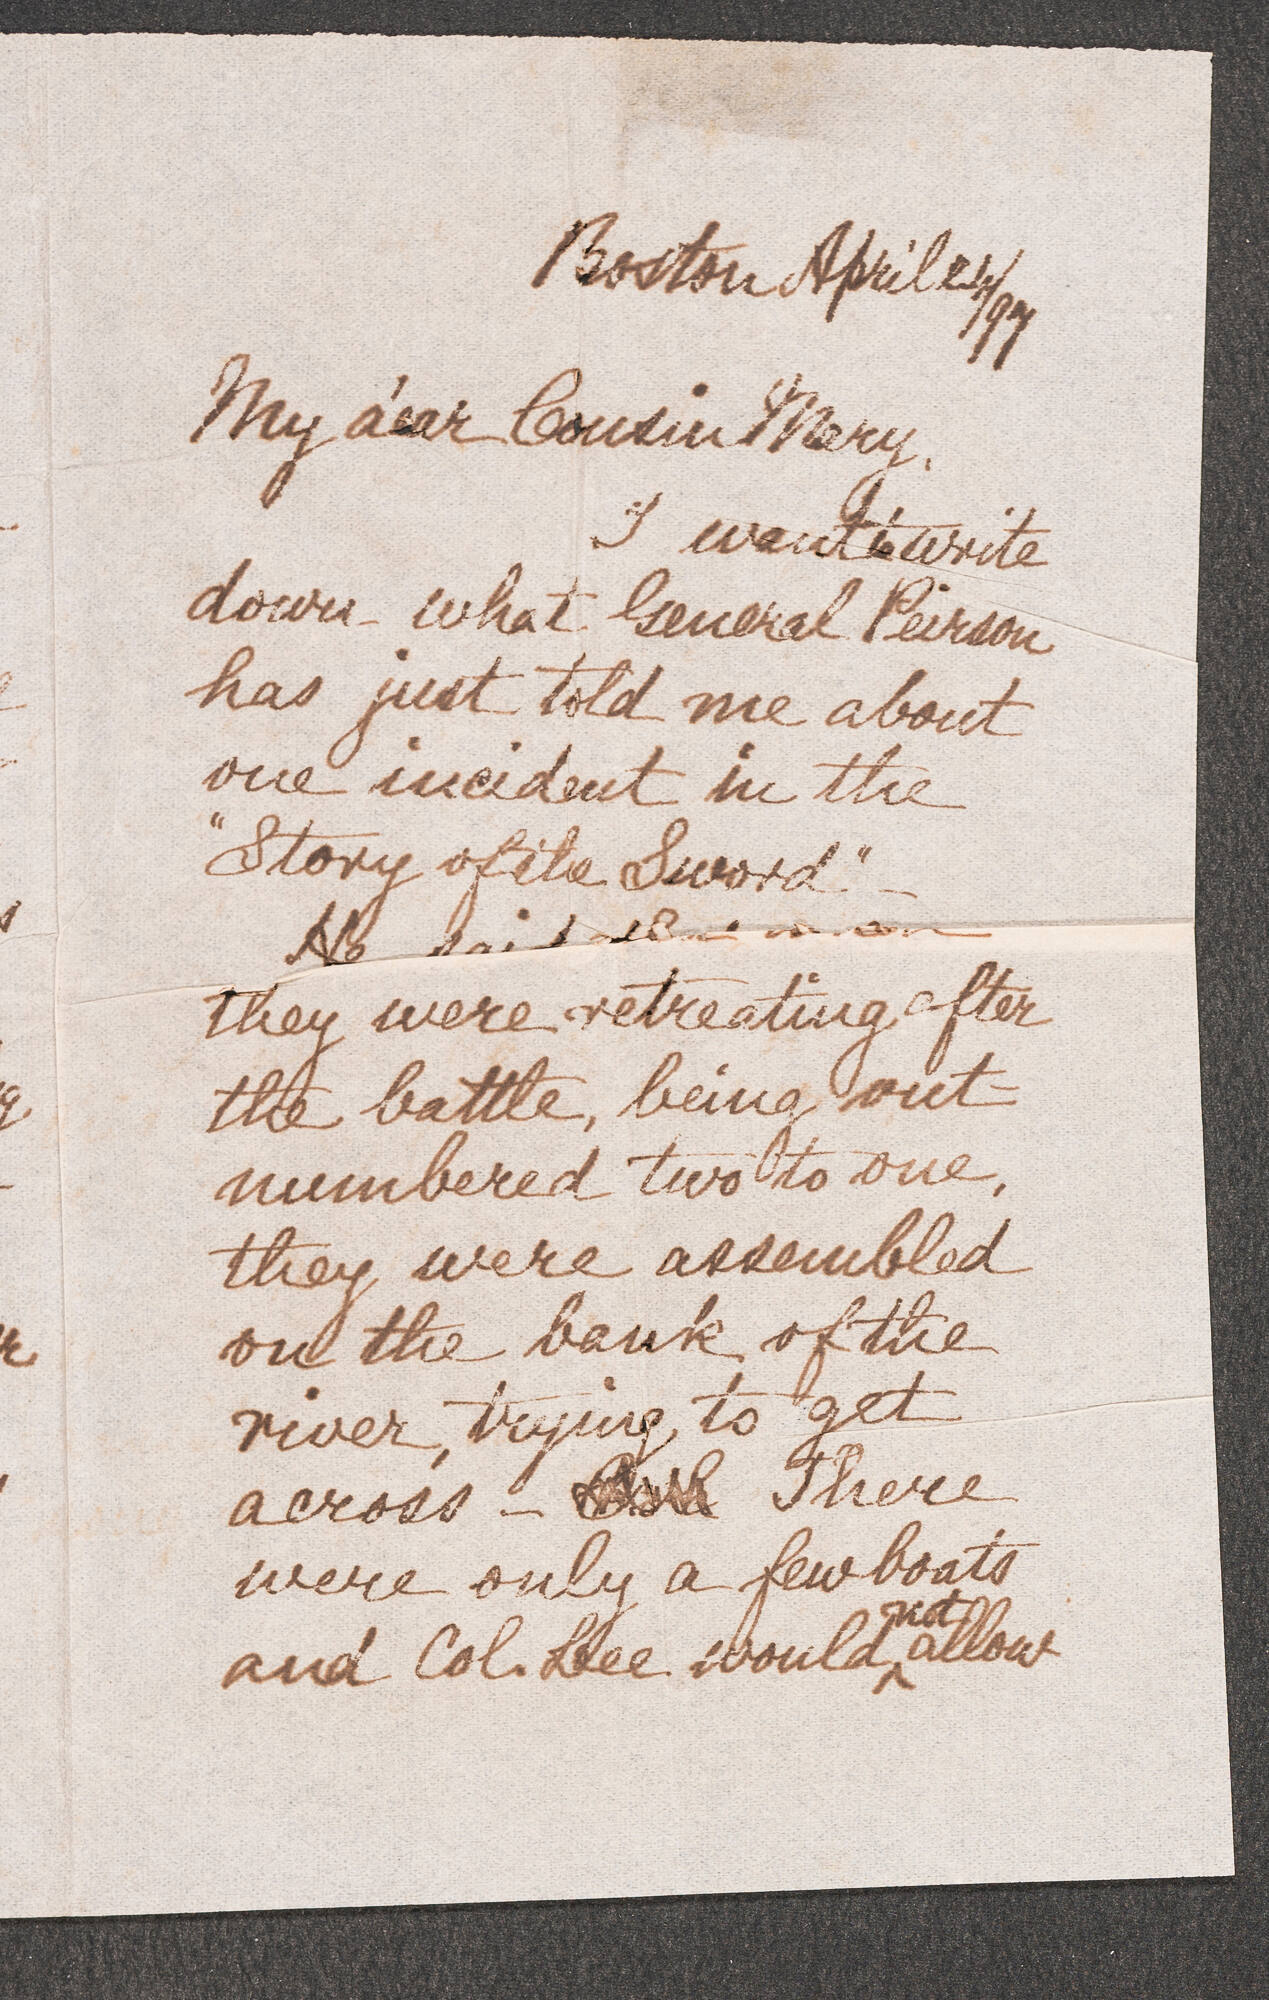 Boston April 24/97
My dear Cousin Mary,
I want to write
down what General Peirson
has just told me about
one incident in the
"Story of the Sword" -
He said
they were retreating after
the battle, being out-
numbered two to one,
they were assembled
on the bank of the
river, trying to get
across - There
were only a few boats
and Col. Lee would not allow